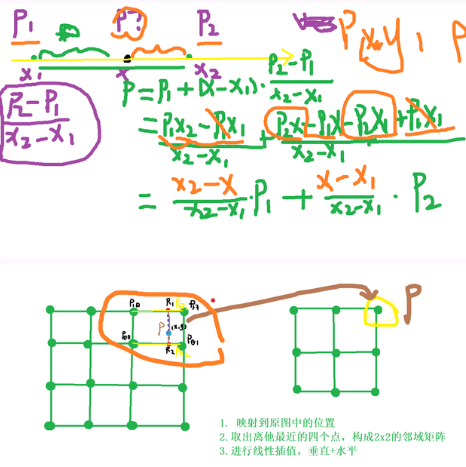 P₁ P? P₂
x₁ x x₂
P₂-P₁
x₂-x₁
P=P₁+(x-x₁)·P₂-P₁
x₂-x₁
=P₁x₂-P₁x₁ + P₂x-P₁x-P₂x₁+P₁x₁
x₂-x₁ x₂-x₁
= x₂-x/x₂-x₁·P₁ + x-x₁/x₂-x₁·P₂
P₁₀ R₁ P₁₁ P
P (x,y)
P₀₀ R₂ P₀₁
1. 映射到原图中的位置
2.取出离他最近的四个点，构成2x2的邻域矩阵
3.进行线性插值，垂直+水平